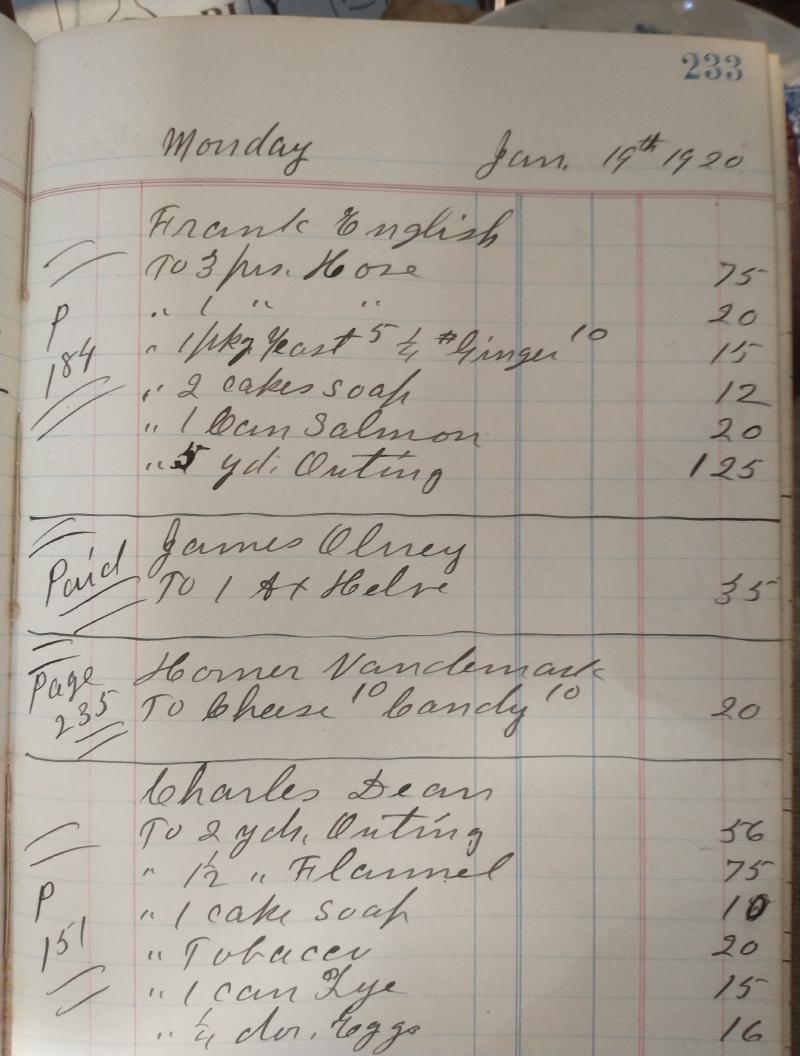 233
Monday Jan. 19th 1920
Frank English
To 3 prs. Hose 75
" 1 " " 20
P
" 1 pkg Yeast 5 ¼ # Ginger 10 15
184
" 2 cakes soap 12
" 1 Can Salmon 20
" 5 yds. Outing 1 25
James Olney
Paid
To 1 Ax Helve 35
Homer Vandemark
Page
235
To Cheese 10 Candy 10 20
Charles Dean
To 2 yds. Outing 56
" 1½ " Flannel 75
P
" 1 cake soap 10
151
" Tobacco 20
" 1 can Lye 15
" ¼ doz. Eggs 16